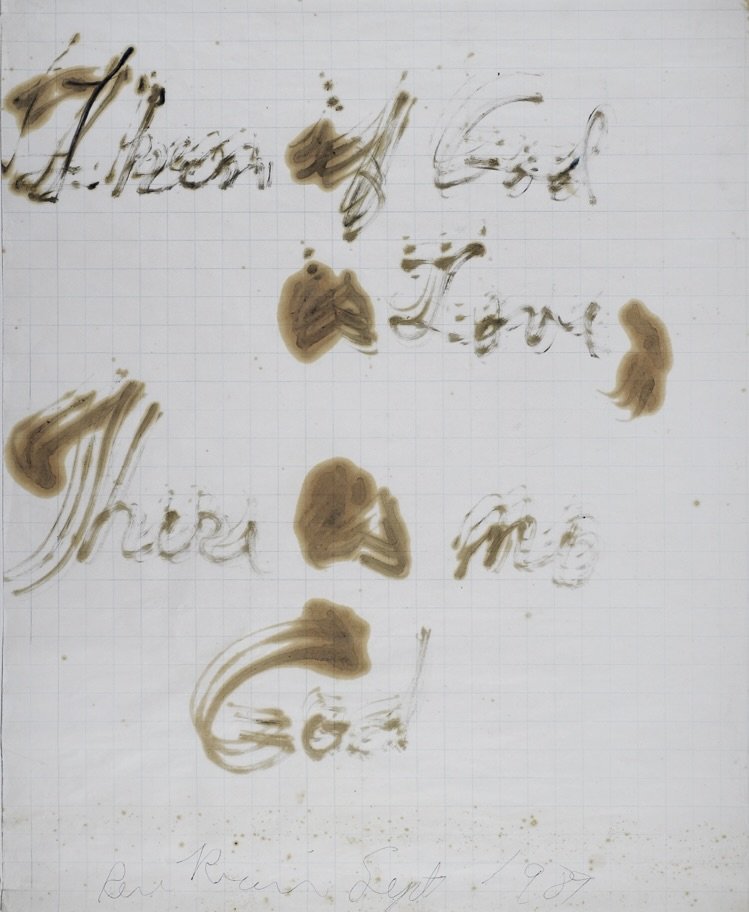 Then if God
is Love,
is my
God
Sept 1987